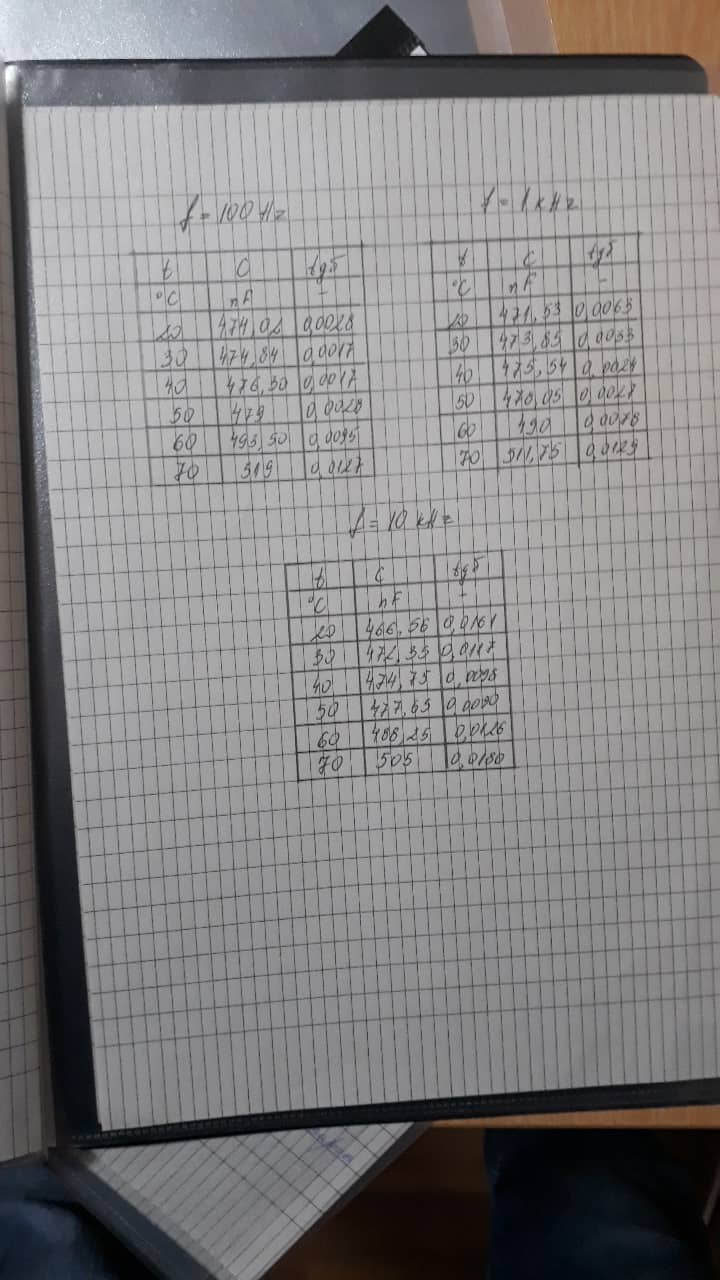 f = 100 Hz
t C tgδ
°C nF –
20 474,02 0,0028
30 474,84 0,0017
40 476,30 0,0017
50 479 0,0028
60 493,50 0,0095
70 519 0,0127
f = 1 kHz
t C tgδ
°C nF –
20 471,53 0,0063
30 473,85 0,0033
40 475,54
50 478,05 0,0027
60 490 0,0078
70 511,75 0,0129
f = 10 kHz
t C tgδ
°C nF –
20 466,56 0,0161
30 472,35 0,0117
40 474,75 0,0098
50 477,65 0,0090
60 488,25 0,0126
70 505 0,0180